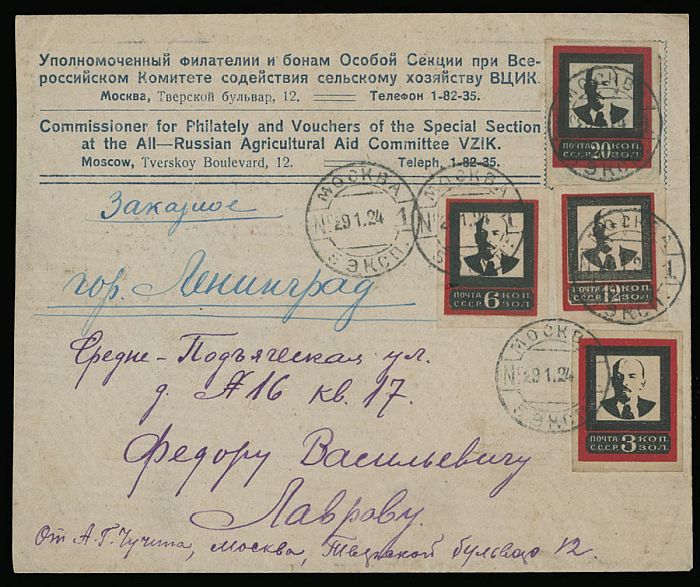 Уполномоченный филателии и бонам Особой Секции при Все-
российском Комитете содействия сельскому хозяйству ВЦИК.
Москва, Тверской бульвар, 12. Телефон 1-82-35.
Commissioner for Philately and Vouchers of the Special Section
at the All—Russian Agricultural Aid Committee VZIK.
Moscow, Tverskoy Boulevard, 12. Teleph. 1-82-35.
ПОЧТА 20 КОП.
СССР ЗОЛ.
МОСКВА
ЭКСП.
Заказное
МОСКВА
№ 29 1.24 1
5 ЭКСП.
МОСКВА
1.24 1
ПОЧТА 6 КОП.
СССР ЗОЛ.
МОСКВА
ЭКСП.
ПОЧТА 12 КОП.
СССР ЗОЛ.
гор. Ленинград
МОСКВА
№ 29 1.24
5 ЭКСП.
ПОЧТА 3 КОП.
СССР ЗОЛ.
Средне-Подъяческая ул.
д. №16 кв. 17.
Федору Васильевичу
Лаврову.
От А.Г. Чучина, Москва, Тверской бульвар 12.